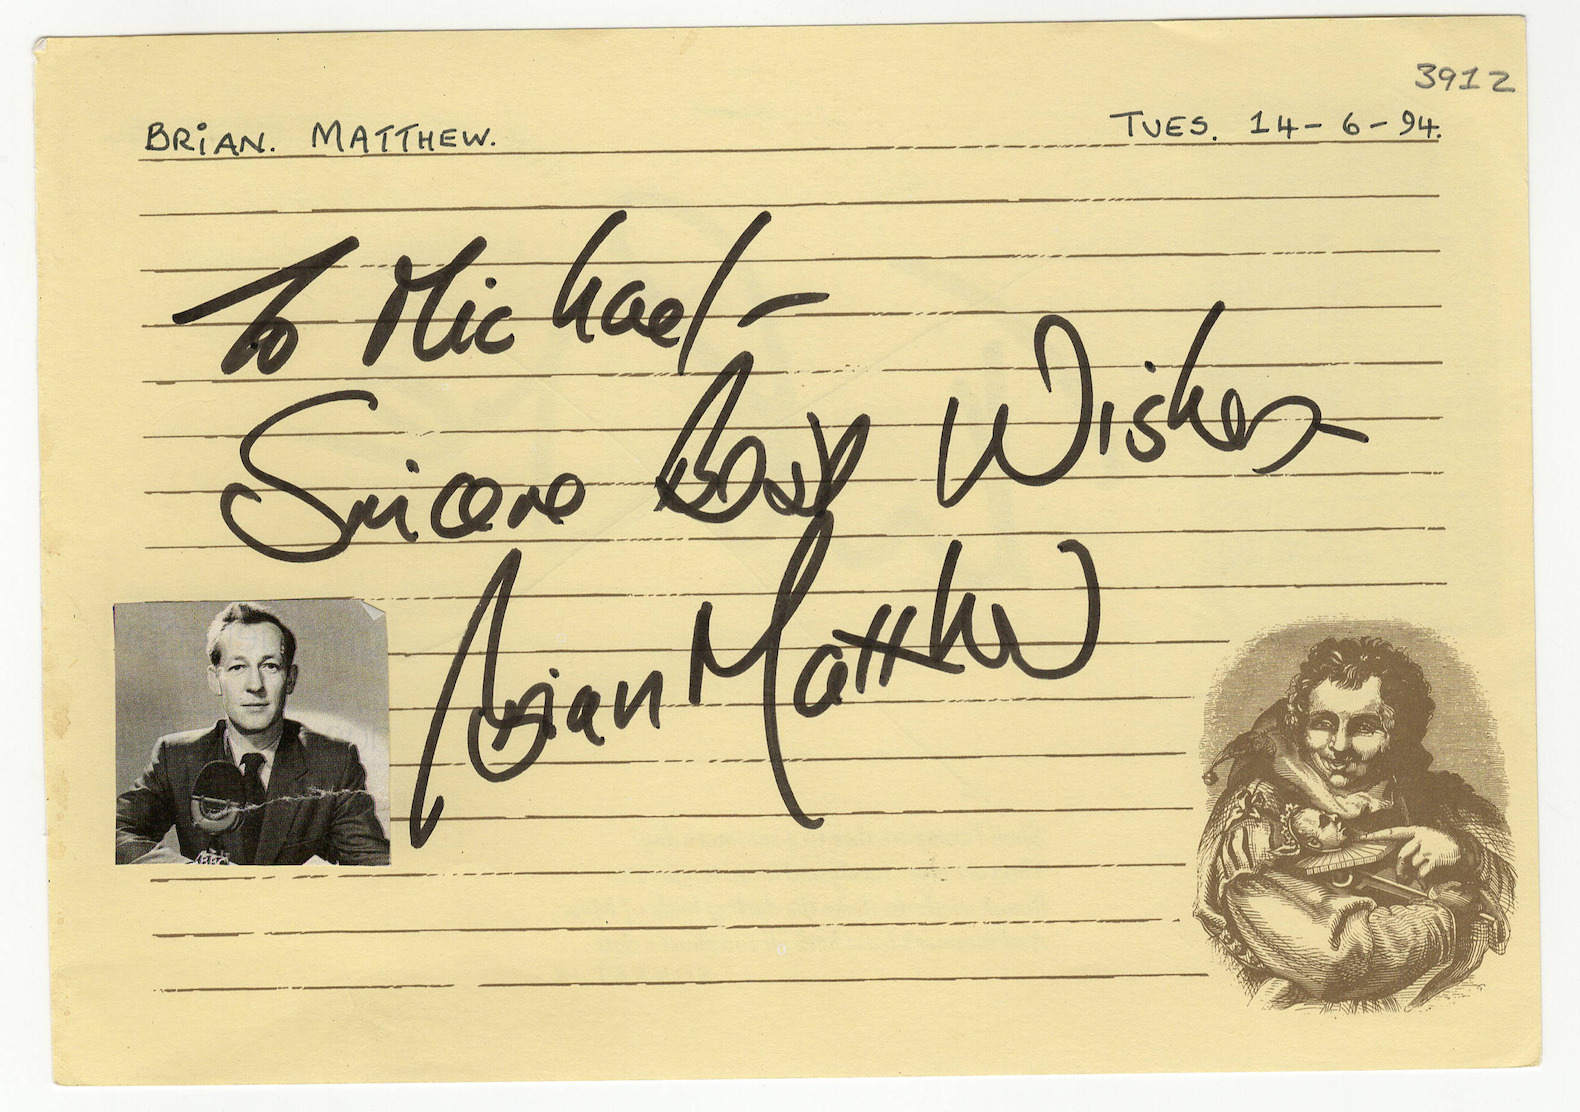 3912
BRiAN. MATTHEW.
TUES. 14-6-94.
To Michael-
Sincere Best Wishes
Brian Matthew
BBC